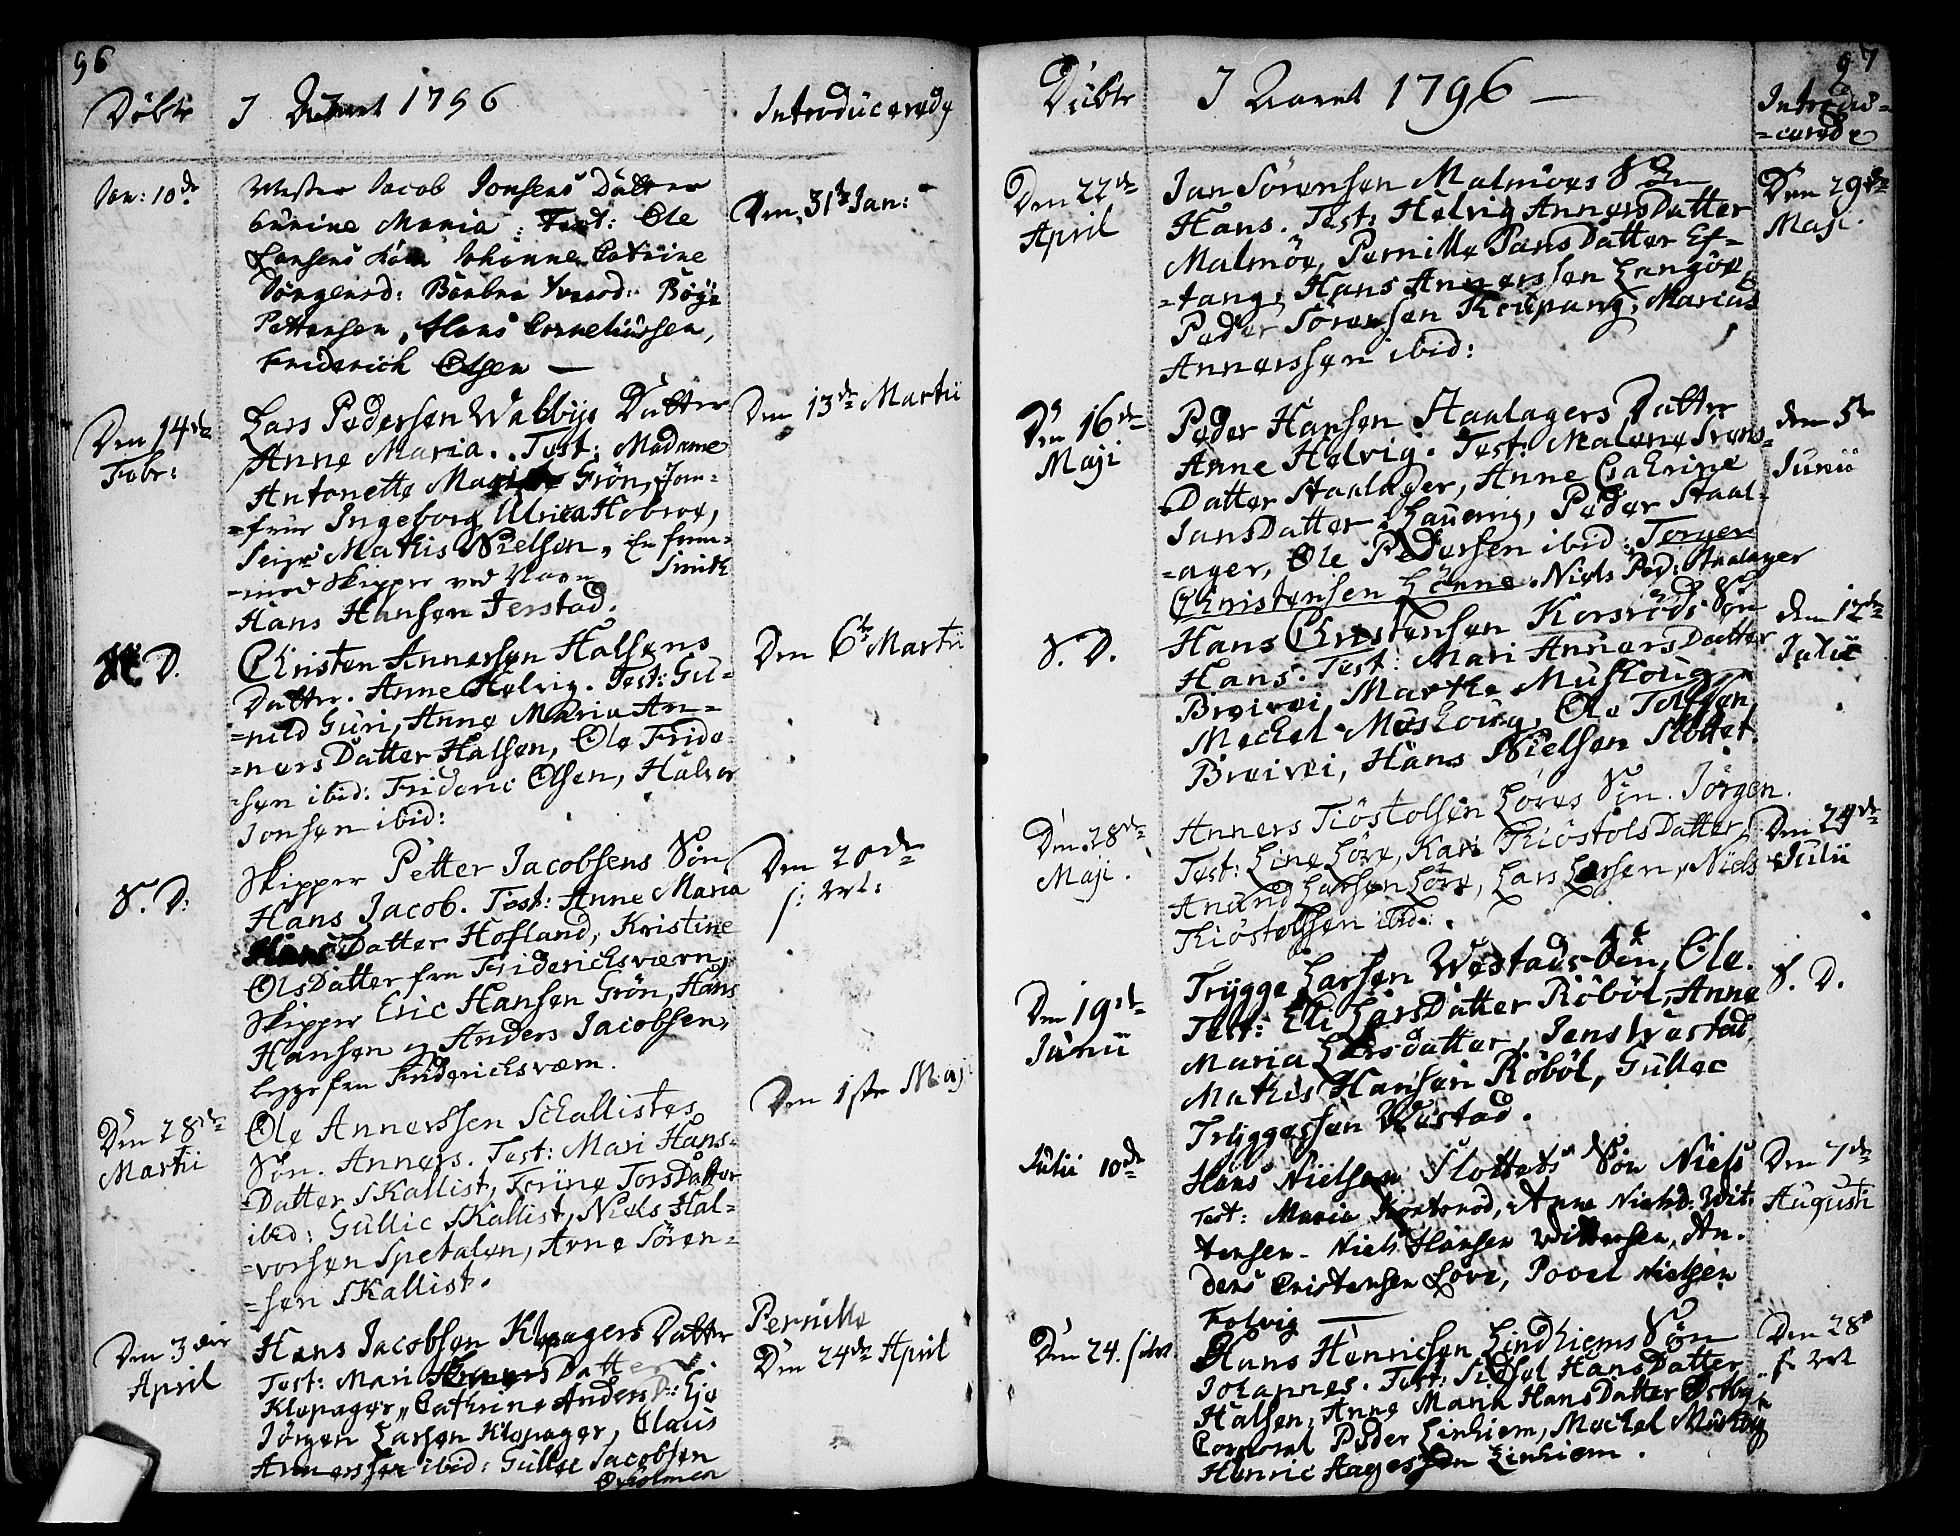 96
Döbte I Aaret 1796 Introducerede
Jan: 10de
Jacob Jonsens Datter
Maria: Test: Ole
Larsens Johanne Catrine
Jörgensd: Barbra Börje
Pettersen, Hans Corneliussen,
Friderich Olsen —
Den 31te Jan:
Den 14de
Febr:
Lars Pedersen Wabbyes Datter
Anne Maria. Test: Madame
Antonette Grön, Jom=
=fru Ingeborg Ulrica Hobroe,
Seigr Mathis Nielsen, En frem=
=med Skipper ved Navn Smith
Hans Hansen Jerstad.
Den 13de Martii
S. D.
Christen Annersen Halsens
Datter. Anne Helvig. Test: Gu=
=nild Guri, Anne Maria An=
=nersDatter Halsen, Ole Fride=
=sen ibid: Frideric Olsen, Halvor
Jonsen ibid:
Den 6te Martii
S. D:
Skipper Petter Jacobsens Sön
Hans Jacob. Test: Anne Maria
HansDatter Hofland, Kristine
OlsDatter fra Friderichsværn,
Skipper Eric Hansen Grön, Hans
Hansen og Anders Jacobsen,
begge fra Friderichsværn.
Den 20de
Den 28de
Martii
Ole Annerssen Schallistes
Sön. Anners. Test: Mari Hans=
=Datter Skallist, Torine TorsDatter
ibid: Gullic Skallist, Niels Hal=
=vorsen Spetalen, Arne Sören=
=sen Skallist.
Den 1ste Maj
Den 3die
April
Hans Jacobsen Klopagers Datter
Pernille
Test: Mari AnnersDatter
Klopager, Cathrine Anders D:
Jörgen Larsen Klopager, Claus
Annerssen ibid: Gullic Jacobsen
Oxholmen
Den 24de April
97
Döbte I Aaret 1796 — Introdu=
=cerede
Den 22de
April
Jan Sörensen Malmöes Sön
Hans. Test: Helvig AnnersDatter
Malmöe, Pernille PansDatter Ef=
=tang, Hans Annerssen Langöe,
Peder Sörensen Koupang, Marius
Annerssen ibid:
Den 29de
Maji.
Den 16de
Maji
Peder Hansen Staalagers Datter
Anne Helvig. Test: Malene Svens=
Datter Staalager, Anne Cathrine
JansDatter Hauerrig, Peder Staal=
=ager, Ole Pedersen ibid: Torger
Christensen Lönne. Niels Ped: Staalager
den 5te
Junii
S. D.
Hans Christensen Korsröds Sön
Hans. Test: Mari AnnersDatter
Breivei, Marthe Muskoug,
Mechel Muskoug, Ole Tolfsen
Breivei, Hans Nielsen Slottet.
den 12de
Julii
Den 28de
Maji.
Anners Tiöstolsen Löves Sön. Jörgen.
Test: Line Löve, Kari ThiöstolsDatter,
Anund Larsen Löve, Lars Larsen, Niels
Thiöstolsen ibid:.
Den 24de
Julii
Den 19de
Junii
Trygge Larsen Westads Sön, Ole.
Test: Eli LarsDatter Röböl, Anne
Maria Larsdatter, Jens Westad,
Mathis Hansen Röböl, Gullec
Tryggessen Westad.
S. D.
Julii 10de
Hans Nielsen Slottets Sön Niels
Test: Maria Kortsrod, Anne Nielsd: Wit
tersen – Niels Hansen Wittersen, An=
ders Cristensen Löve, Povel Nielsen
Folvig —
Den 7de
Augusti
Den 24.
Hans Henricsen Lindhiems Sön
Johannes. Test: Sidsel HansDatter
Halsen, Anne Maria HansDatter Østby
Corporal Peder Linhiem, Mechel Muskoug
Henric Aagessen Linhiem.
Den 28de